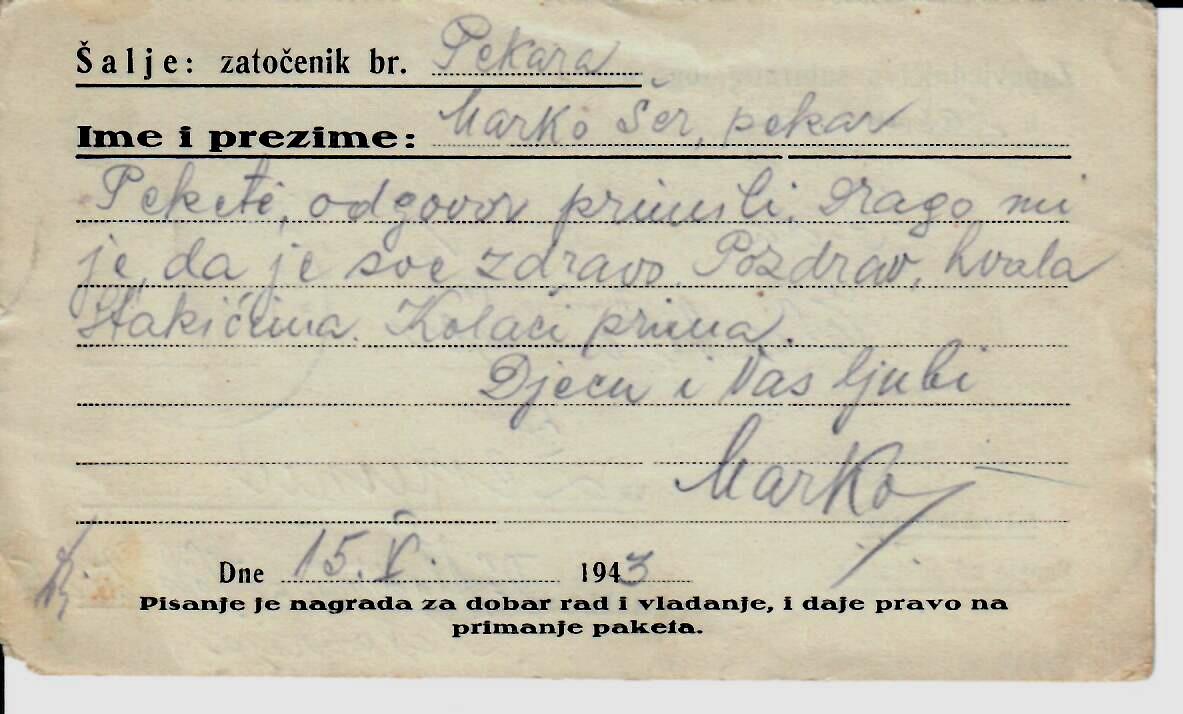 Šalje: zatočenik br. Pekara
Ime i prezime: Marko Šer, pekar
Pekete, odgovor primili. Drago mi
je, da je sve zdravo. Pozdrav, hvala
Stakićima. Kolači prima.
Djecu i Vas ljubi
Marko
Dne 15. X. 1943
Pisanje je nagrada za dobar rad i vladanje, i daje pravo na
primanje paketa.